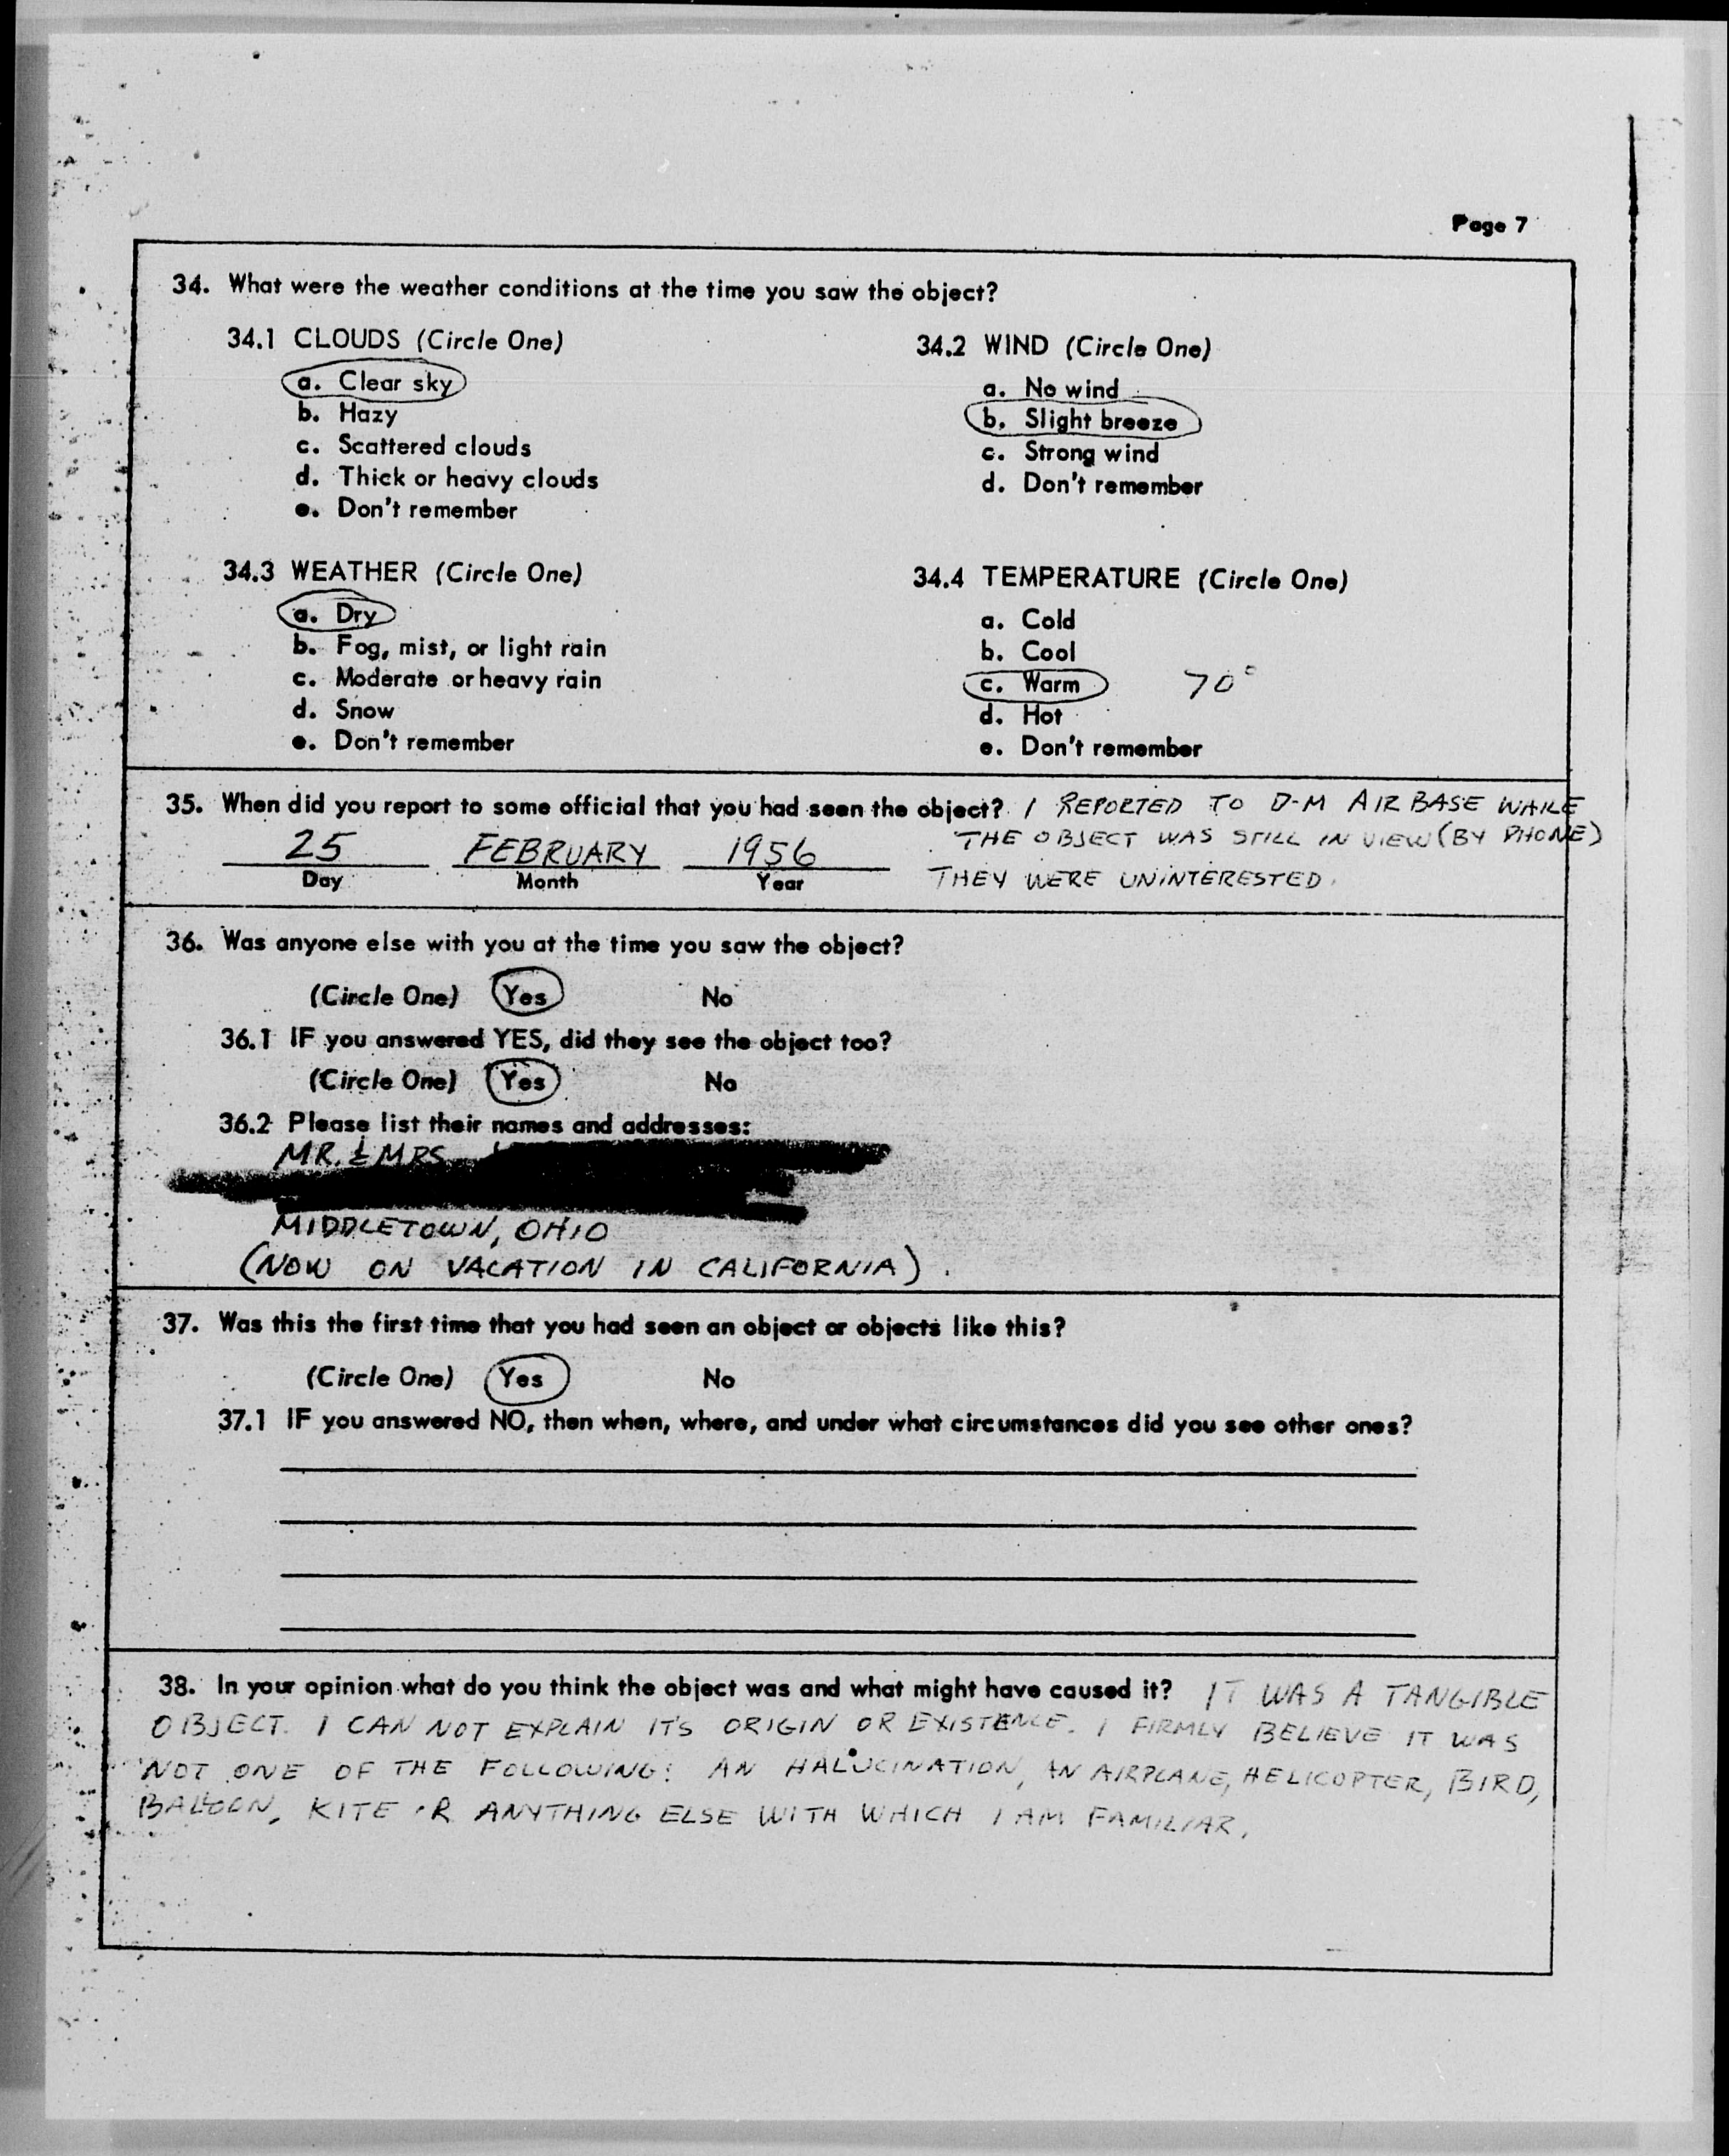 Page 7
34. What were the weather conditions at the time you saw the object?
34.1 CLOUDS (Circle One)
a. Clear sky
b. Hazy
c. Scattered clouds
d. Thick or heavy clouds
e. Don't remember
34.2 WIND (Circle One)
a. No wind
b. Slight breeze
c. Strong wind
d. Don't remember
34.3 WEATHER (Circle One)
a. Dry
b. Fog, mist, or light rain
c. Moderate or heavy rain
d. Snow
e. Don't remember
34.4 TEMPERATURE (Circle One)
a. Cold
b. Cool
c. Warm 70°
d. Hot
e. Don't remember
35. When did you report to some official that you had seen the object? I REPORTED TO D-M AIR BASE WHILE
THE OBJECT WAS STILL IN VIEW (BY PHONE)
25 FEBRUARY 1956
Day Month Year
THEY WERE UNINTERESTED.
36. Was anyone else with you at the time you saw the object?
(Circle One) Yes No
36.1 IF you answered YES, did they see the object too?
(Circle One) Yes No
36.2 Please list their names and addresses:
MR. & MRS.
MIDDLETOWN, OHIO
(NOW ON VACATION IN CALIFORNIA).
37. Was this the first time that you had seen an object or objects like this?
(Circle One) Yes No
37.1 IF you answered NO, then when, where, and under what circumstances did you see other ones?
38. In your opinion what do you think the object was and what might have caused it? IT WAS A TANGIBLE
OBJECT. I CAN NOT EXPLAIN IT'S ORIGIN OR EXISTENCE. I FIRMLY BELIEVE IT WAS
NOT ONE OF THE FOLLOWING: AN HALUCINATION, AN AIRPLANE, HELICOPTER, BIRD,
BALLOON, KITE OR ANYTHING ELSE WITH WHICH I AM FAMILIAR.